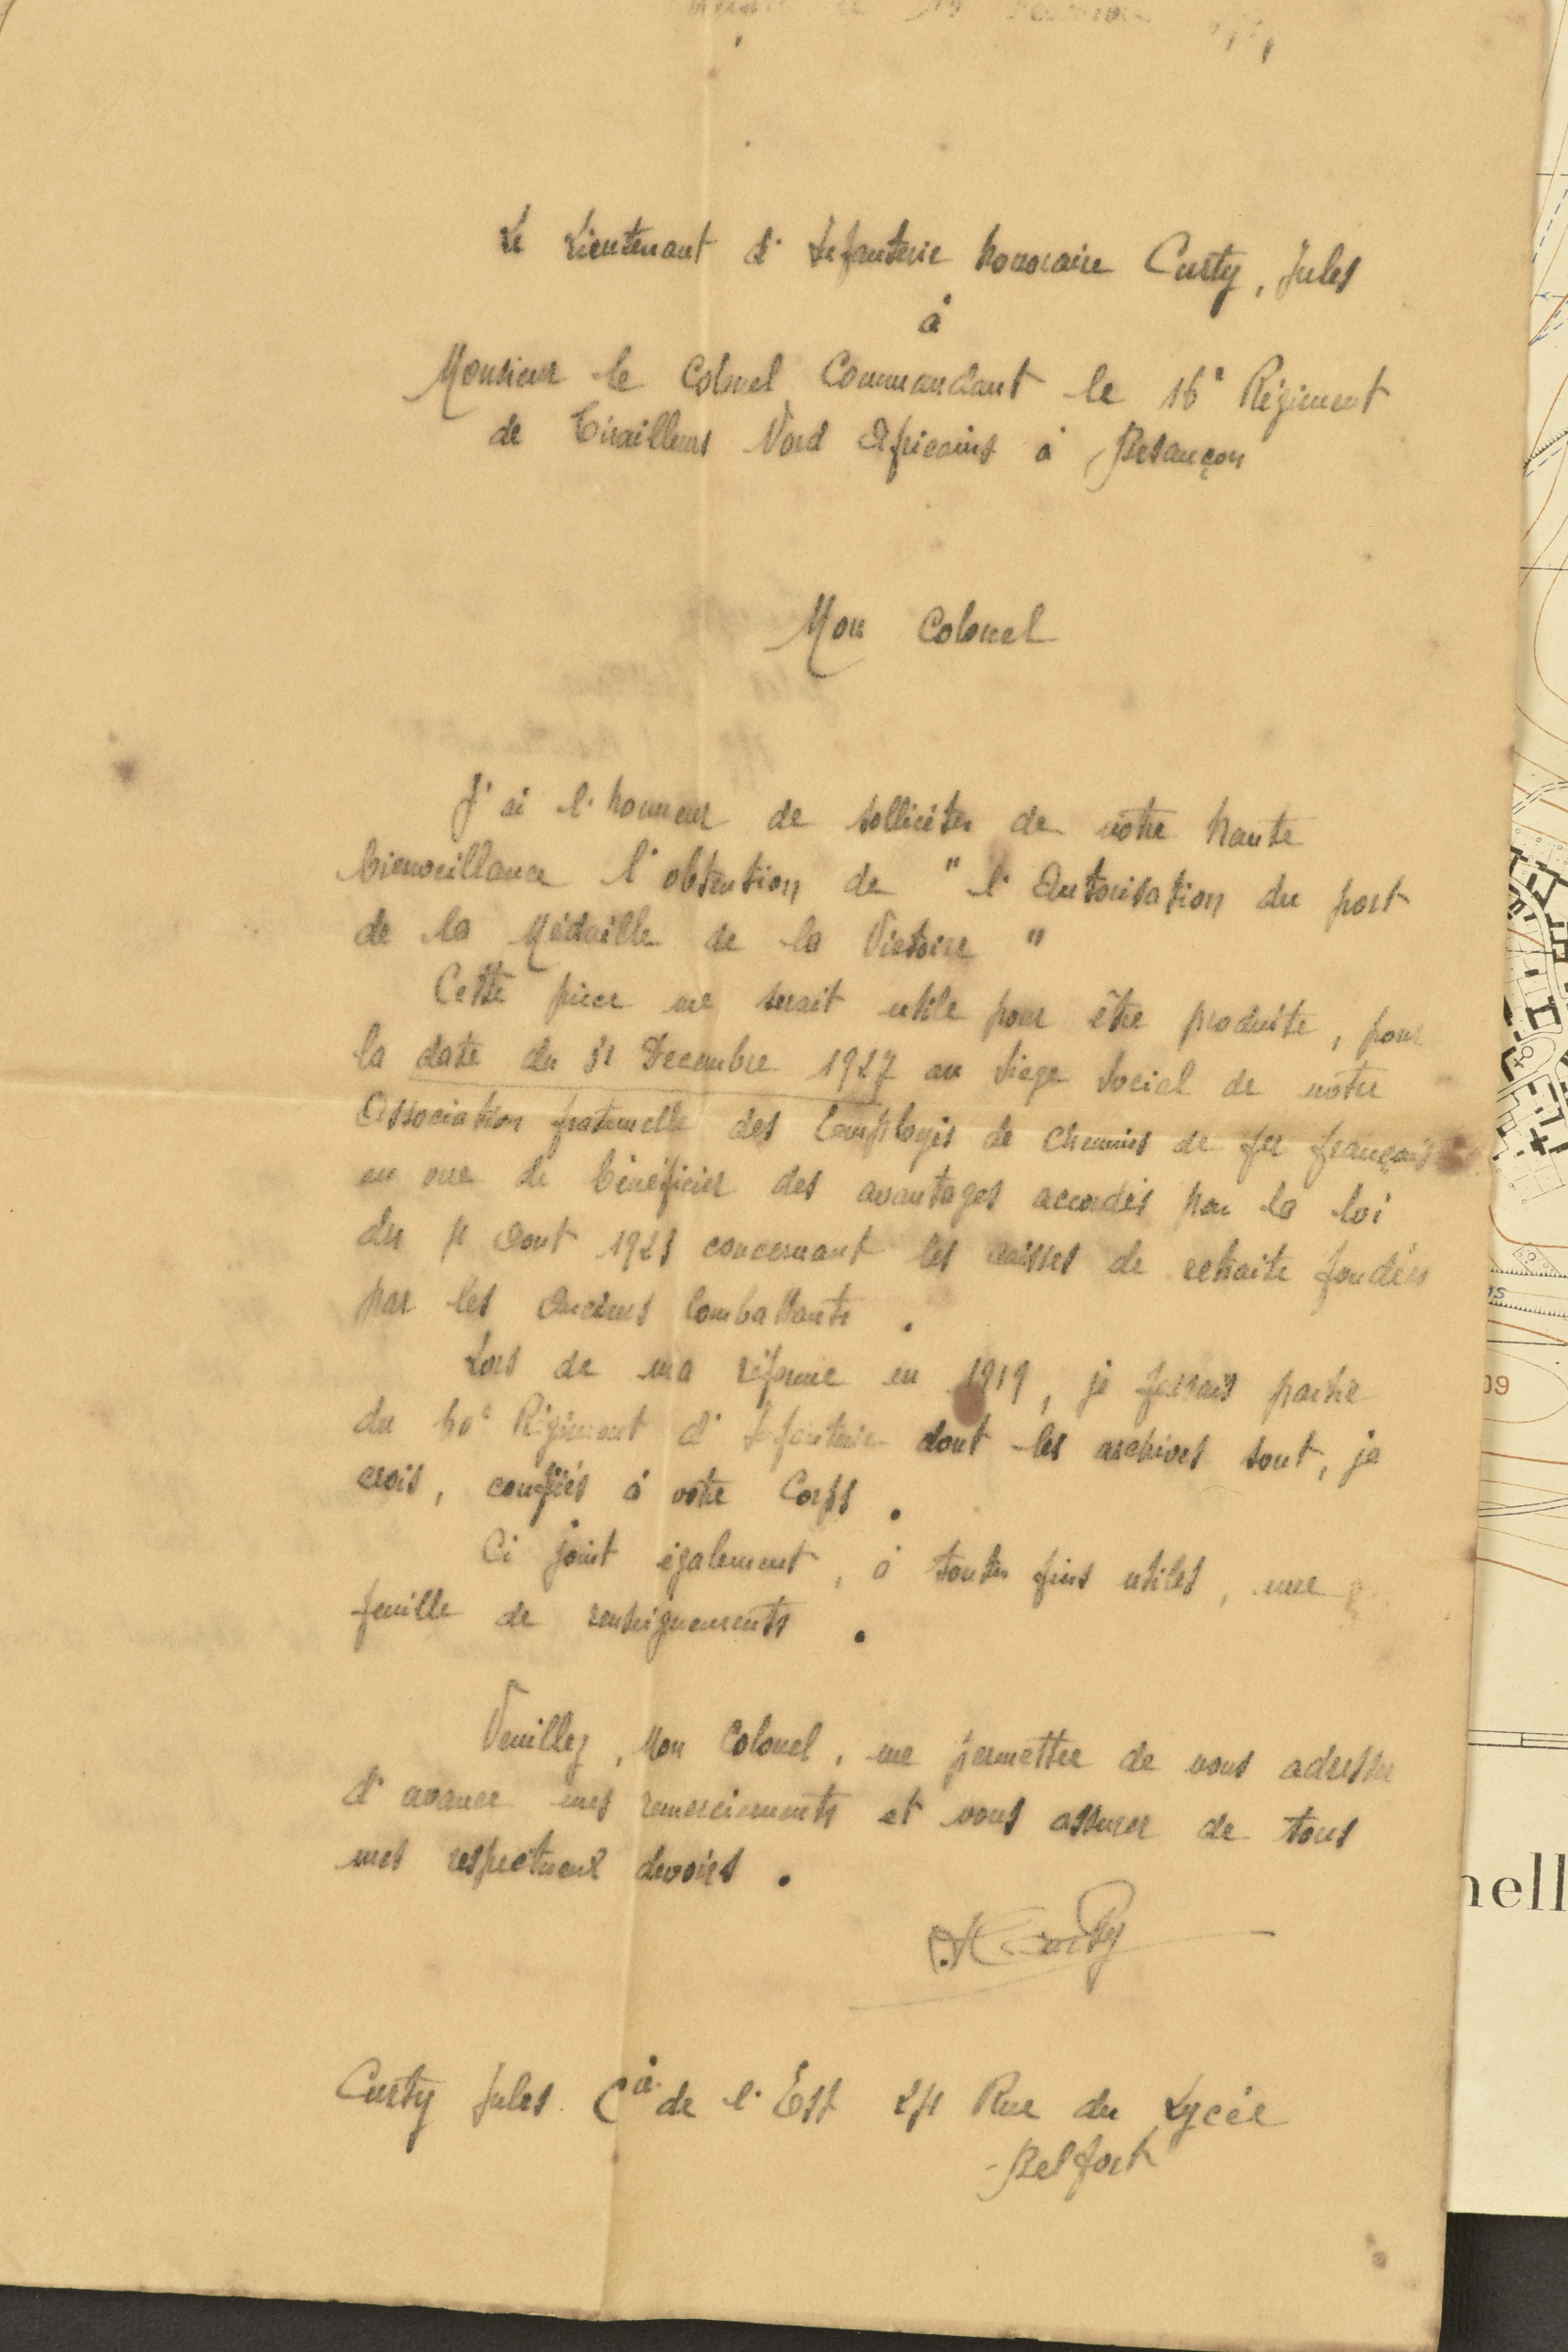 Le Lieutenant d'Infanterie honoraire Curty, Jules
à
Monsieur le Colonel Commandant le 16e Régiment
de Tirailleurs Nord Africains à Besançon
Mon Colonel
J'ai l'honneur de solliciter de votre haute
bienveillance l'obtention de "l'Autorisation du port
de la Médaille de la Victoire"
Cette pièce me serait utile pour être produite, pour
la date du 31 Decembre 1927 au Siège Social de notre
Association fraternelle des Employés de chemins de fer français
en vue de bénéficier des avantages accordés par la loi
du Aout concernant les caisses de retraite fondées
par les Anciens Combattants.
Lors de ma réforme en 1919, je faisais partie
du 60e Régiment d'Infanterie dont les archives sont, je
crois, confiés à votre Corps.
Ci joint également, à toutes fins utiles, une
feuille de renseignements.
Veuillez, Mon Colonel, me permettre de vous adresser
d'avance mes remerciements et vous assurer de tous
mes respectueux devoirs.
Curty
Curty Jules. Cie de l'Est Rue du Lycée
Belfort
09
nell